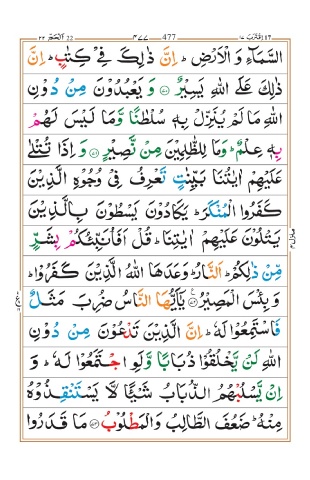 اقترب ١٧ ٤٧٧ 477 الحج ٢٢ 22
السَّمَآءِ وَ الْاَرْضِ ؕ اِنَّ ذٰلِكَ فِیْ كِتٰبٍ ؕ اِنَّ
ذٰلِكَ عَلَی اللّٰهِ یَسِیْرٌ ﴿۷۰﴾ وَ یَعْبُدُوْنَ مِنْ دُوْنِ
اللّٰهِ مَا لَمْ یُنَزِّلْ بِهٖ سُلْطٰنًا وَّ مَا لَیْسَ لَهُمْ
بِهٖ عِلْمٌ ؕ وَ مَا لِلظّٰلِمِیْنَ مِنْ نَّصِیْرٍ ﴿۷۱﴾ وَ اِذَا تُتْلٰی
عَلَیْهِمْ اٰیٰتُنَا بَیِّنٰتٍ تَعْرِفُ فِیْ وُجُوْهِ الَّذِیْنَ
كَفَرُوا الْمُنْكَرَ ؕ یَكَادُوْنَ یَسْطُوْنَ بِالَّذِیْنَ
یَتْلُوْنَ عَلَیْهِمْ اٰیٰتِنَا ؕ قُلْ اَفَاُنَبِّئُكُمْ بِشَرٍّ
مِّنْ ذٰلِكُمْ ؕ اَلنَّارُ ؕ وَعَدَهَا اللّٰهُ الَّذِیْنَ كَفَرُوْا ؕ
وَ بِئْسَ الْمَصِیْرُ ﴿۷۲﴾ یٰۤاَیُّهَا النَّاسُ ضُرِبَ مَثَلٌ
فَاسْتَمِعُوْا لَهٗ ؕ اِنَّ الَّذِیْنَ تَدْعُوْنَ مِنْ دُوْنِ
اللّٰهِ لَنْ یَّخْلُقُوْا ذُبَابًا وَّ لَوِ اجْتَمَعُوْا لَهٗ ؕ وَ
اِنْ یَّسْلُبْهُمُ الذُّبَابُ شَیْـًٔا لَّا یَسْتَنْقِذُوْهُ
مِنْهُ ؕ ضَعُفَ الطَّالِبُ وَ الْمَطْلُوْبُ ﴿۷۳﴾ مَا قَدَرُوا